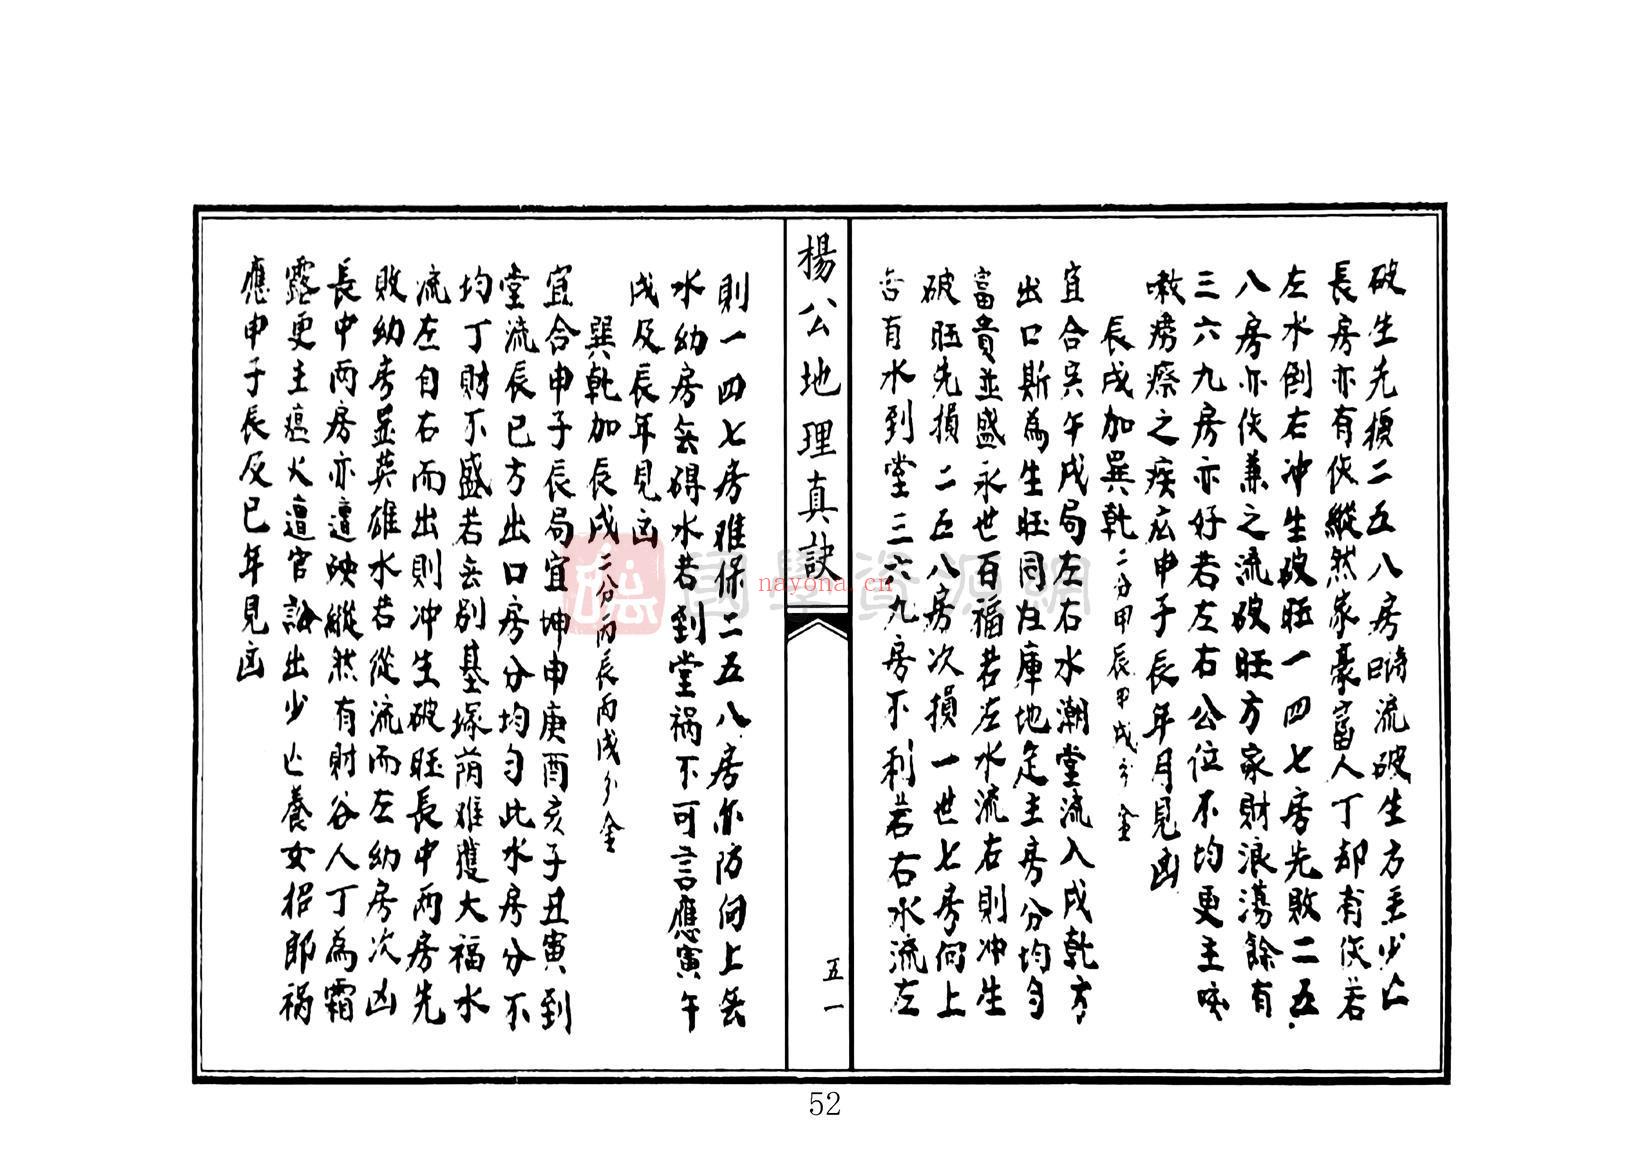 破生先損二五八房時流破生方主少亡
長房亦有伖縱然家豪富人丁却有伖若
左水倒右冲生破旺一四七房先敗二五
八房亦伖兼之流破旺方家財浪蕩餘有
三六九房亦好若左右公位不均更主咳
嗽癆瘵之疾應申子辰年月見凶
辰戌加巽乾二分甲辰甲戌分金
宜合寅午戌局左右水潮堂流入戌乾方
出口斯為生旺同歸庫地定主房分均勻
富貴並盛永世百福若左水流右則冲生
破旺先損二五八房次損一世七房何上
若有水到堂三六九房不利若右水流左
楊公地理真訣
五一
則一四七房难保二五八房亦防何上無
水幼房無碍水若到堂祸不可言應寅午
戌及辰年見凶
巽乾加辰戌二分丙辰丙戌分金
宜合申子辰局宜坤申庚酉亥子丑寅到
堂流辰巳方出口房分均勻此水房分不
均丁財不盛若無别基塚荫难獲大福水
流左自右而出則冲生破旺長中兩房先
敗幼房並英雄水若從流而左幼房次凶
長中兩房亦遭殃縱然有財谷人丁為霜
露更主瘟火遭官訟出少亡養女招郎祸
應申子辰及巳年見凶
國學資源網
nayona.cn
52